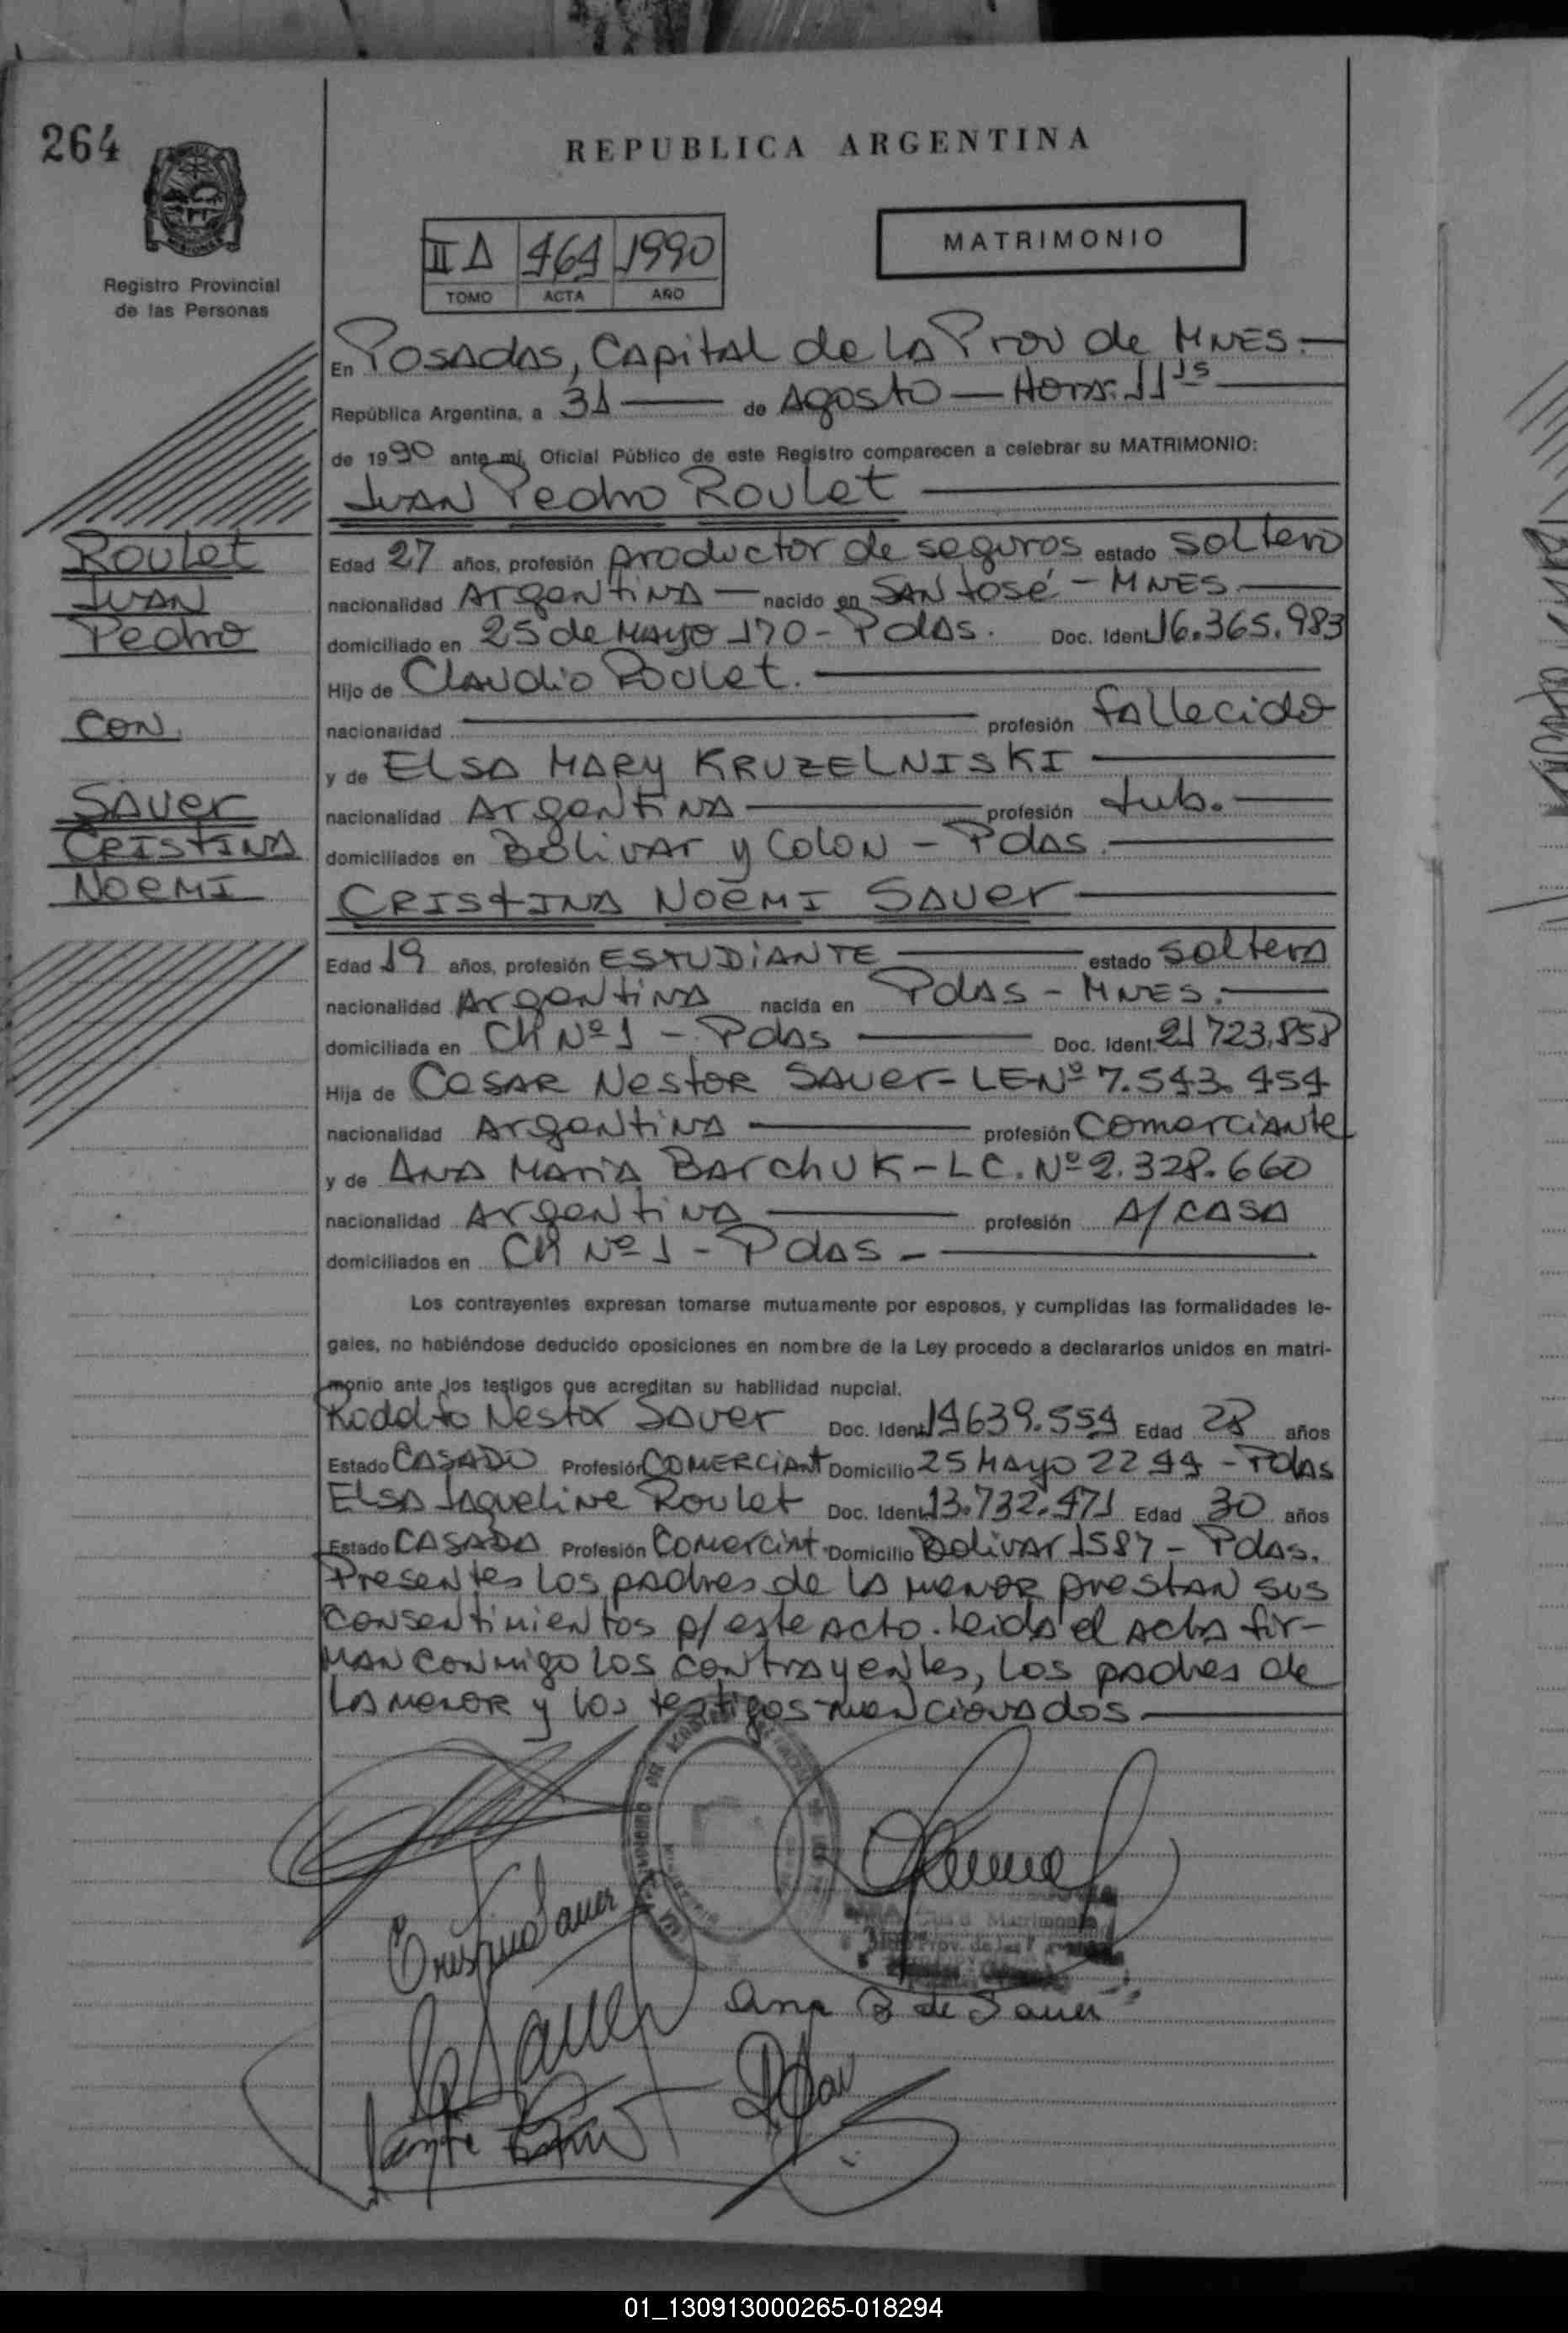 264
REPUBLICA ARGENTINA
Registro Provincial
de las Personas
II A 464 1990
TOMO ACTA AÑO
MATRIMONIO
En Posadas, Capital de la Prov de Mnes.
República Argentina, a 31 de Agosto — Hora: 11 15
de 1990 ante mi, Oficial Público de este Registro comparecen a celebrar su MATRIMONIO:
Juan Pedro Roulet
Edad 27 años, profesión productor de seguros estado soltero
nacionalidad Argentina — nacido en San José - Mnes
domiciliado en 25 de Mayo 170 - Pdas. Doc. Ident. 16.365.983
Hijo de Claudio Roulet.
nacionalidad profesión fallecido
y de Elsa Mary Kruzelniski
nacionalidad Argentina profesión Jub.
domiciliados en Bolivar y Colon - Pdas.
Cristina Noemi Sauer
Edad 19 años, profesión Estudiante estado soltera
nacionalidad Argentina nacida en Pdas - Mnes.
domiciliada en Ch Nº 1 - Pdas Doc. Ident. 21723.858
Hija de Cesar Nestor Sauer - LE Nº 7.543.454
nacionalidad Argentina profesión Comerciante
y de Ana Maria Barchuk - LC. Nº 2.328.660
nacionalidad Argentina profesión A/casa
domiciliados en Ch Nº 1 - Pdas -
Los contrayentes expresan tomarse mutuamente por esposos, y cumplidas las formalidades le-
gales, no habiéndose deducido oposiciones en nombre de la Ley procedo a declararlos unidos en matri-
monio ante los testigos que acreditan su habilidad nupcial.
Rodolfo Nestor Sauer Doc. Ident. 14639.554 Edad 28 años
Estado Casado Profesión Comerciant Domicilio 25 Mayo 2244 - Pdas
Elsa Jaqueline Roulet Doc. Ident. 13.732.471 Edad 30 años
Estado Casada Profesión Comerciant Domicilio Bolivar 1587 - Pdas.
Presentes los padres de la menor prestan sus
consentimientos p/ este acto. Leida el acta fir-
man conmigo los contrayentes, los padres de
la menor y los testigos mencionados
Roulet
Juan
Pedro
con
Sauer
Cristina
Noemi
Cristina Sauer
Sauer
Ana B de Sauer
01_130913000265-018294